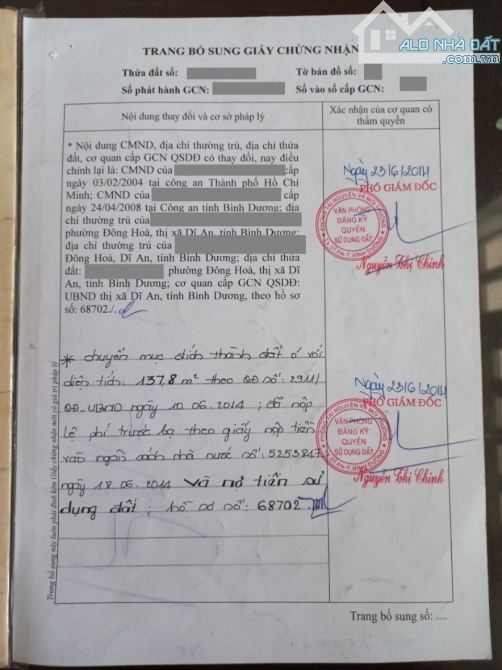 ALO NHÀ ĐẤT
.com.vn
TRANG BỔ SUNG GIẤY CHỨNG NHẬN
Thửa đất số:
Tờ bản đồ số:
Số phát hành GCN:
Số vào sổ cấp GCN:
Nội dung thay đổi và cơ sở pháp lý
Xác nhận của cơ quan có
thẩm quyền
* Nội dung CMND, địa chỉ thường trú, địa chỉ thửa
đất, cơ quan cấp GCN QSDĐ có thay đổi, nay điều
chỉnh lại là: CMND của cấp
ngày 03/02/2004 tại công an Thành phố Hồ Chí
Minh; CMND của cấp
ngày 24/04/2008 tại Công an tỉnh Bình Dương; địa
chỉ thường trú của ông
phường Đông Hoà, thị xã Dĩ An, tỉnh Bình Dương;
địa chỉ thường trú của
Đông Hoà, Dĩ An, tỉnh Bình Dương; địa chỉ thửa
đất: phường Đông Hoà, thị xã Dĩ
An, tỉnh Bình Dương; cơ quan cấp GCN QSDĐ:
UBND thị xã Dĩ An, tỉnh Bình Dương, theo hồ sơ
số: 68702./.
Ngày 23/6/2014
PHÓ GIÁM ĐỐC
VĂN PHÒNG
ĐĂNG KÝ
QUYỀN
SỬ DỤNG ĐẤT
Nguyễn Thị Chinh
* chuyển mục đích thành đất ở với
diện tích: 137,8 m² theo QĐ số: 2911/
QĐ.UBND ngày 10.06.2014; đã nộp
lệ phí trước bạ theo giấy nộp tiền
vào ngân sách nhà nước số: 5253847
ngày 18.06.2014 và nợ tiền sử
dụng đất; hồ sơ số: 68702
Ngày 23/6/2014
PHÓ GIÁM ĐỐC
VĂN PHÒNG
ĐĂNG KÝ
QUYỀN
SỬ DỤNG ĐẤT
Nguyễn Thị Chinh
Trang bổ sung này luôn phải đính kèm Giấy chứng nhận mới có giá trị pháp lý
Trang bổ sung số: ....